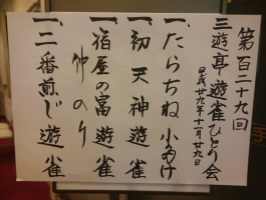 第百二十九回
三遊亭遊雀ひとり会
平成廿九年十一月廿九日
一、たらちね 小もけ
一、初天神 遊雀
一、宿屋の富 遊雀
仲のり
一、二番煎じ 遊雀